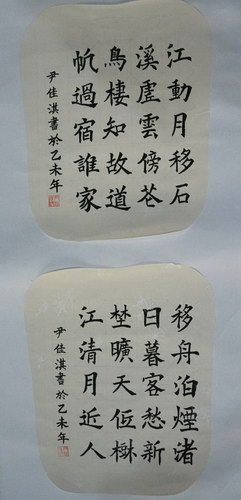 江動月移石
溪虛雲傍花
鳥棲知故道
帆過宿誰家
尹佳淇書於乙未年
移舟泊煙渚
日暮客愁新
埜曠天低樹
江清月近人
尹佳淇書於乙未年